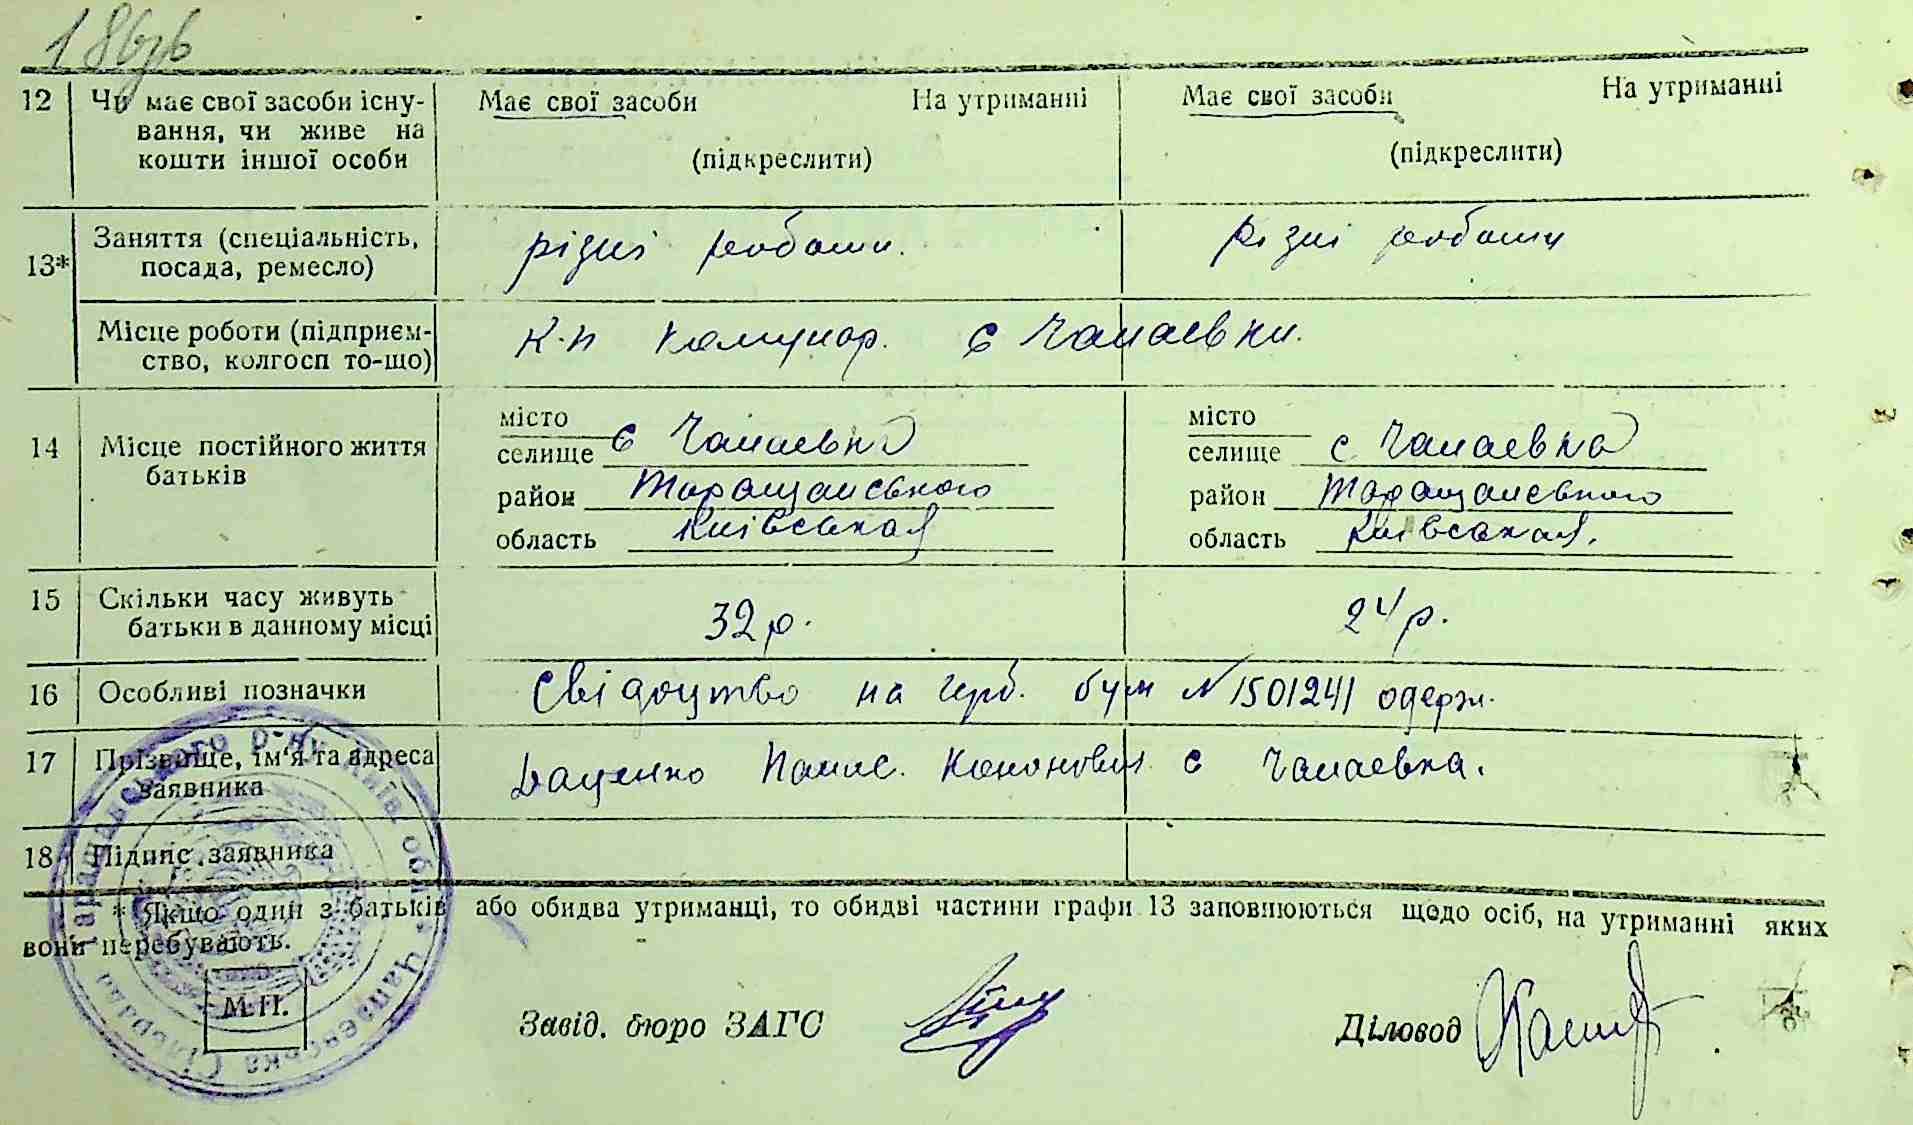 12 Чи має свої засоби існу-
вання, чи живе на
кошти іншої особи
Має свої засоби На утриманні
(підкреслити)
Має свої засоби На утриманні
(підкреслити)
13* Заняття (спеціальність,
посада, ремесло)
різні роботи.
Різні роботи
Місце роботи (підприєм-
ство, колгосп то-що)
к-п комунар. с Чапаевки.
14 Місце постійного життя
батьків
місто
селище с Чапаевка
район Таращанського
область Київськая
місто
селище с. Чапаевка
район Таращанського
область Київськая.
15 Скільки часу живуть
батьки в данному місці
32 р.
24 р.
16 Особливі позначки
Свідоцтво на герб. бум N 1501241 одерж.
17 Прізвище, ім'я та адреса
заявника
Даценко Панас. Кононович с Чапаевка.
18 Підпис заявника
* Якщо один з батьків або обидва утриманці, то обидві частини графи 13 заповнюються щодо осіб, на утриманні яких
вони перебувають.
М.П.
Завід. бюро ЗАГС
Діловод
Таращанського р-ну Київ. обл. Чапаєвська Сільрада